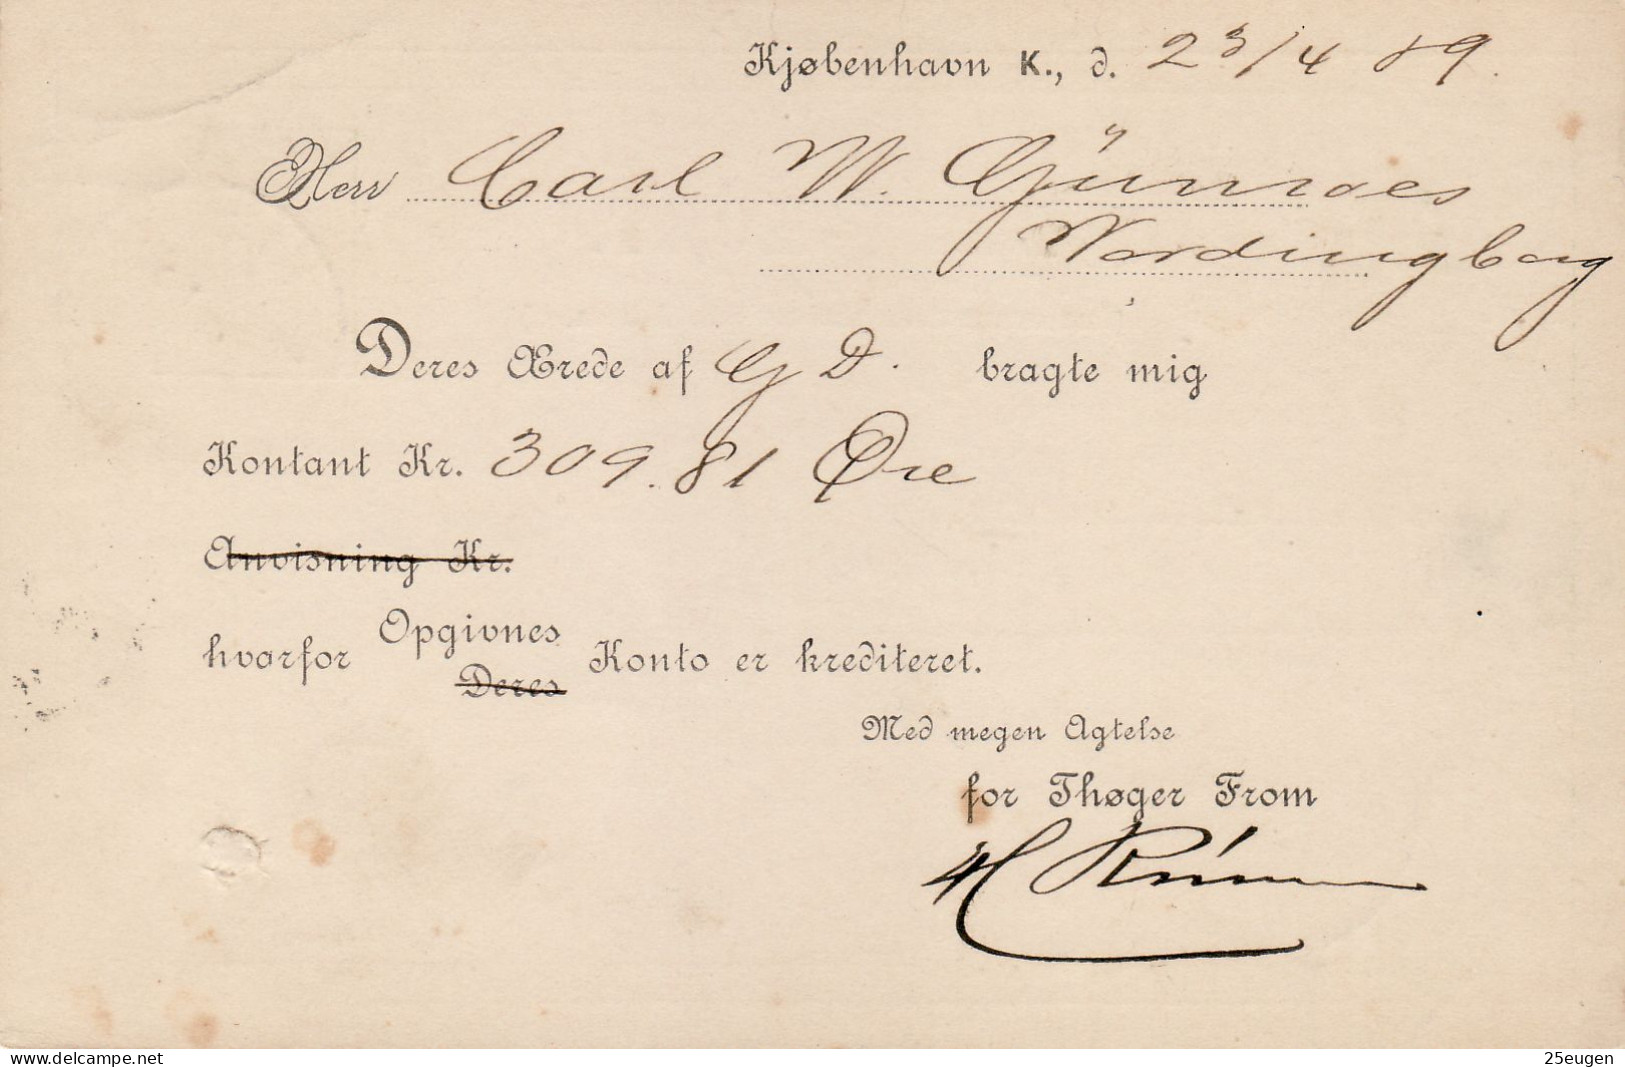 Kjøbenhavn K., d. 23/4 89.
Herr Carl W. 
Wordingborg
Deres Ærede af G D. bragte mig
Kontant Kr. 309.81 Øre
Anvisning Kr.
hvorfor Opgivnes Konto er krediteret.
Deres
Med megen Agtelse
for Thøger From
www.delcampe.net
25eugen